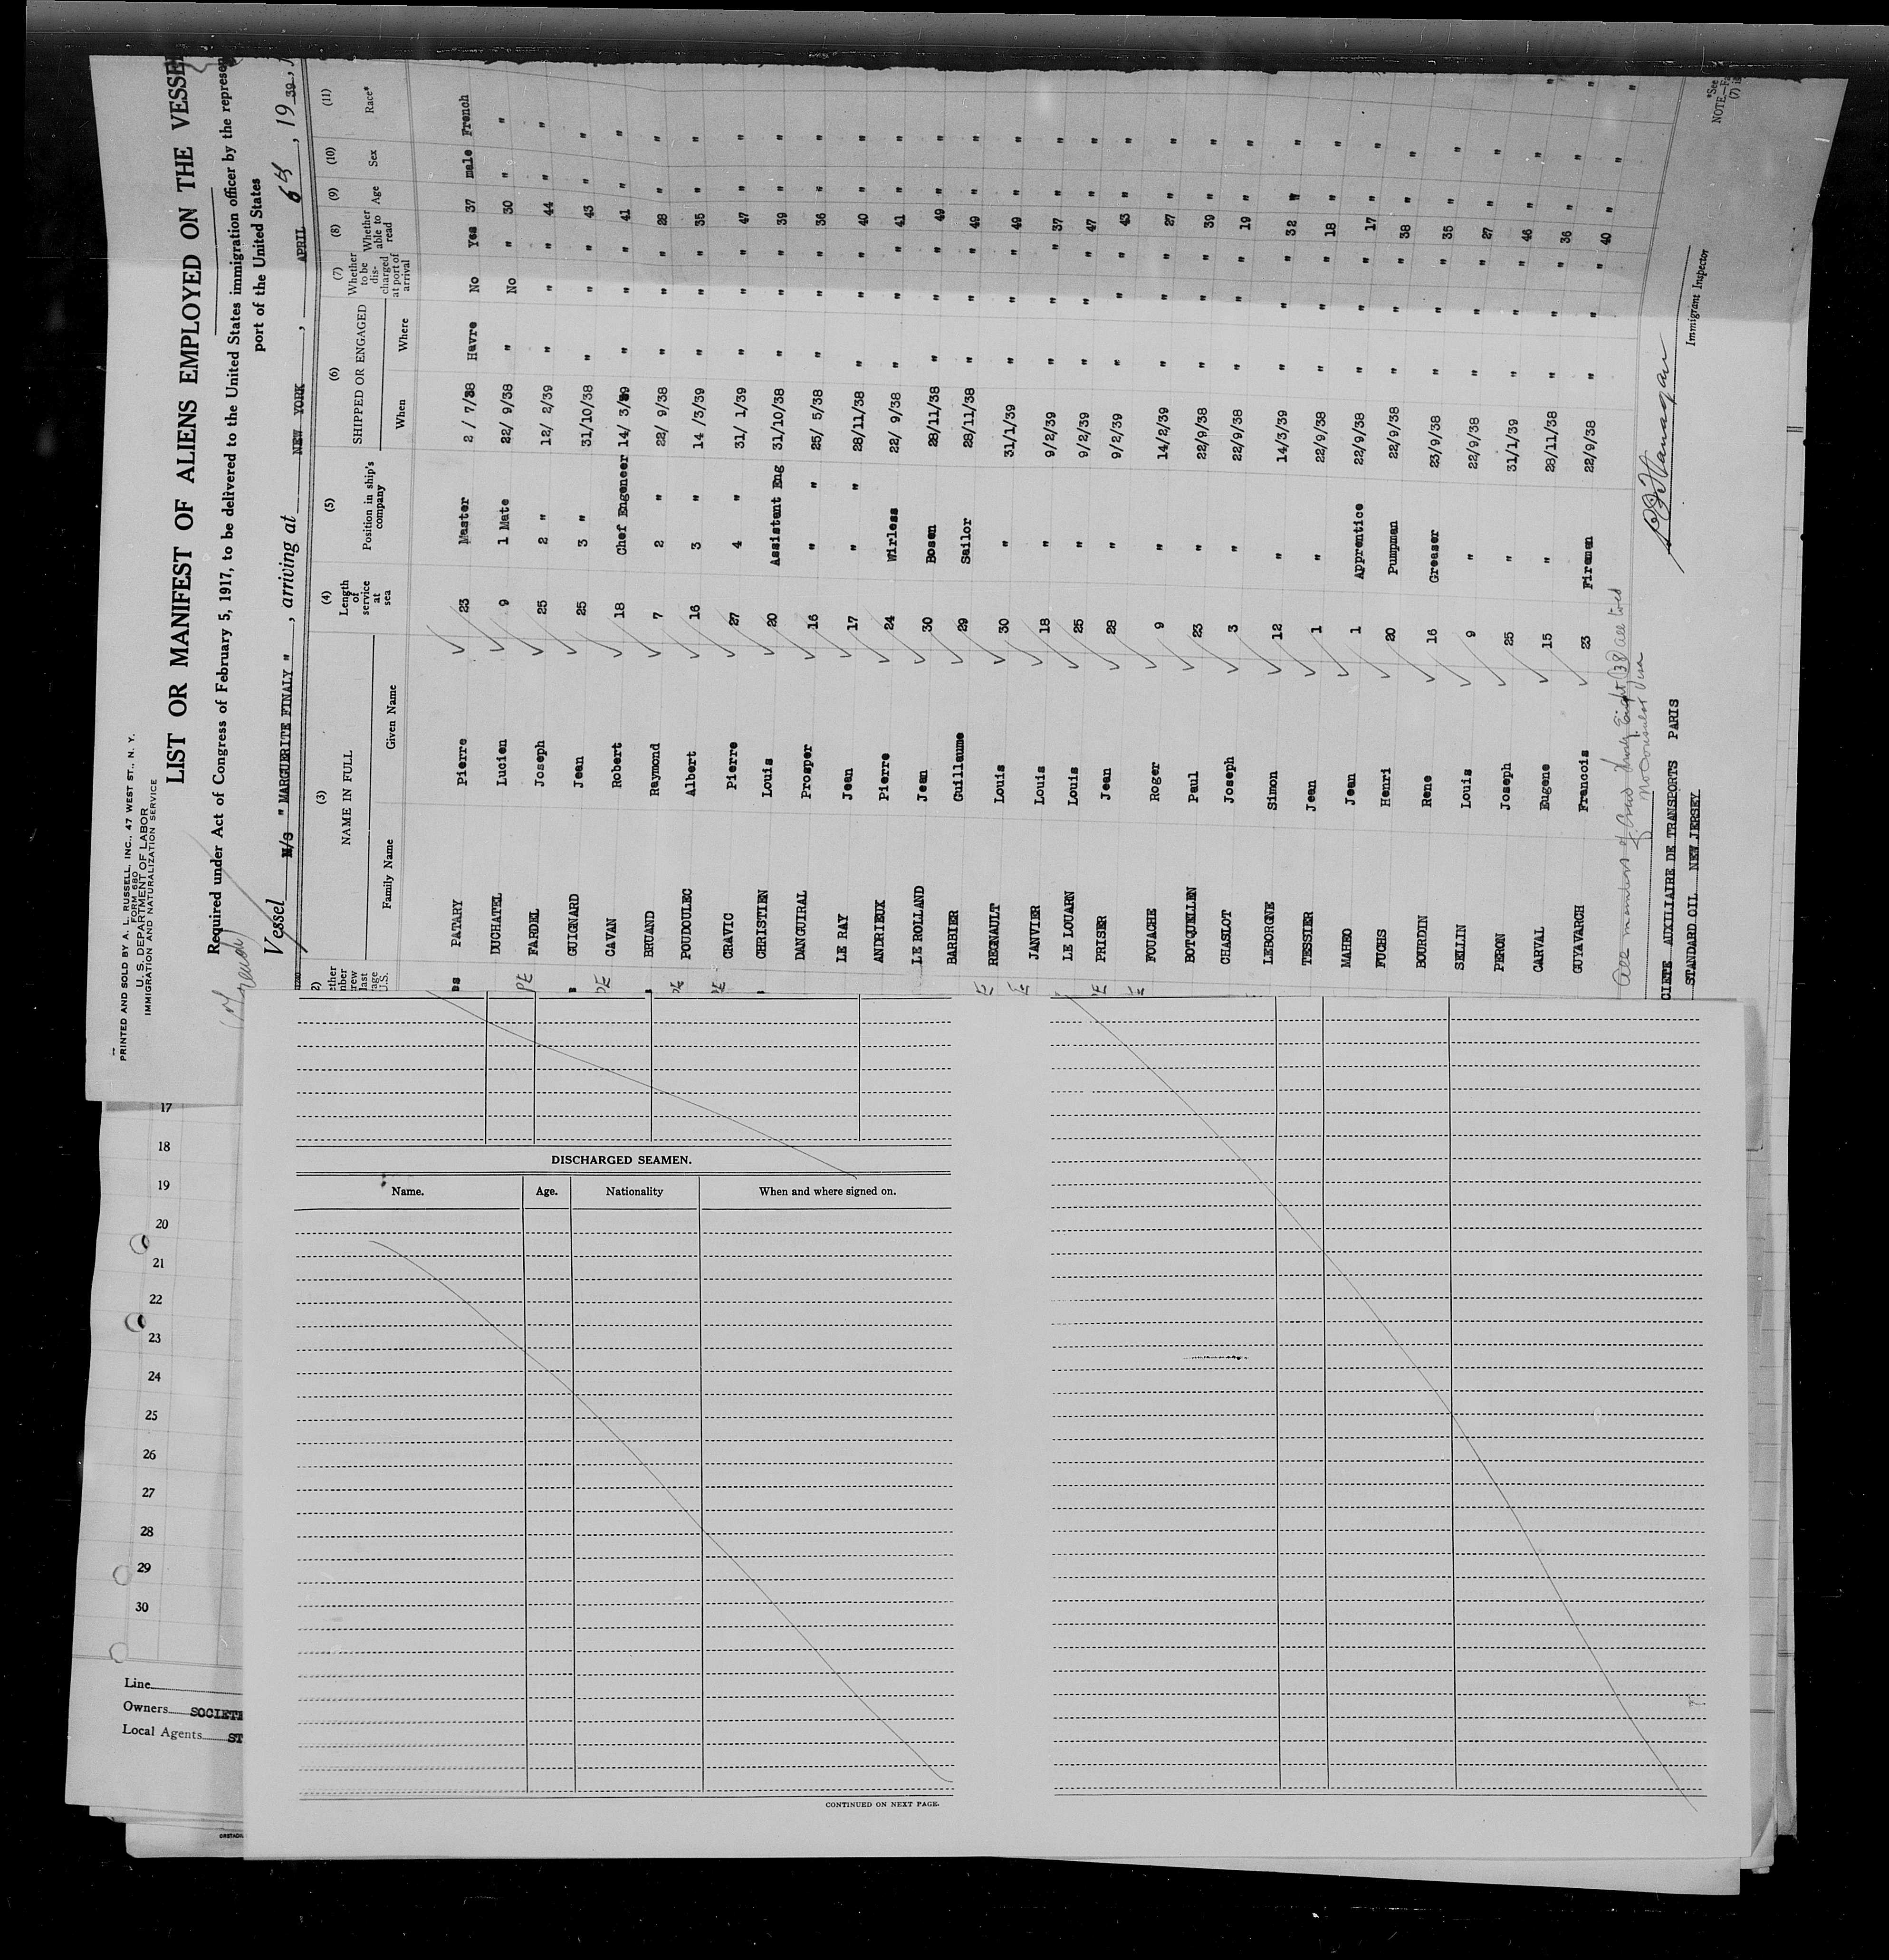 PRINTED AND SOLD BY A. L. RUSSELL, INC., 47 WEST ST., N. Y.
FORM 680
U. S. DEPARTMENT OF LABOR
IMMIGRATION AND NATURALIZATION SERVICE
(French)
LIST OR MANIFEST OF ALIENS EMPLOYED ON THE VESSE
Required under Act of Congress of February 5, 1917, to be delivered to the United States immigration officer by the represen
port of the United States
Vessel M/S " MARGUERITE FINALY ", arriving at NEW YORK, APRIL 6th, 19 39
(3) NAME IN FULL (4) Length of service at sea (5) Position in ship's company (6) SHIPPED OR ENGAGED (7) Whether to be discharged at port of arrival (8) Whether able to read (9) Age (10) Sex (11) Race*
Family Name Given Name When Where
PATARY Pierre 23 Master 2 / 7/38 Havre No Yes 37 male French
DUCHATEL Lucien 9 1 Mate 22/ 9/38 " No " 30 " "
FARDEL Joseph 25 2 " 12/ 2/39 " " " 44 " "
GUIGNARD Jean 25 3 " 31/10/38 " " " 43 " "
CAVAN Robert 18 Chef Engeneer 14/ 3/39 " " " 41 " "
BRUAND Raymond 7 2 " 22/ 9/38 " " " 28 " "
POUDOULEC Albert 16 3 " 14 /3/39 " " " 35 " "
CRAVIC Pierre 27 4 " 31/ 1/39 " " " 47 " "
CHRISTIEN Louis 20 Assistent Eng 31/10/38 " " " 39 " "
DANGUIRAL Prosper 16 " " 25/ 5/38 " " " 36 " "
LE RAY Jean 17 " " 28/11/38 " " " 40 " "
ANDRIEUX Pierre 24 Wirless 22/ 9/38 " " " 41 " "
LE ROLLAND Jean 30 Bosen 28/11/38 " " " 49 " "
BARBIER Guillaume 29 Sailor 28/11/38 " " " 49 " "
REGNAULT Louis 30 " 31/1/39 " " " 49 " "
JANVIER Louis 18 " 9/2/39 " " " 37 " "
LE LOUARN Louis 25 " 9/2/39 " " " 47 " "
PRISER Jean 28 " 9/2/39 " " " 43 " "
FOUACHE Roger 9 " 14/2/39 " " " 27 " "
BOTQUELLEN Paul 23 " 22/9/38 " " " 39 " "
CHASLOT Joseph 3 " 22/9/38 " " " 19 " "
LEBORGNE Simon 12 " 14/3/39 " " " 32 " "
TESSIER Jean 1 " 22/9/38 " " " 18 " "
MAHEO Jean 1 Apprentice 22/9/38 " " " 17 " "
FUCHS Henri 20 Pumpman 22/9/38 " " " 38 " "
BOURDIN Rene 16 Greaser 23/9/38 " " " 35 " "
SELLIN Louis 9 " 22/9/38 " " " 27 " "
PERON Joseph 25 " 31/1/39 " " " 46 " "
CARVAL Eugene 15 " 28/11/38 " " " 36 " "
GUYAVARCH Francois 23 Firemen 22/9/38 " " " 40 " "
All members of Crew Thirty Eight (38) all told
No Consular Visa
CIETE AUXILIAIRE DE TRANSPORTS PARIS
STANDARD OIL NEW JERSEY
Immigrant Inspector
*See
NOTE.—Fa
(7) is
17
18
19
20
21
22
23
24
25
26
27
28
29
30
Line
Owners SOCIETE
Local Agents ST
DISCHARGED SEAMEN.
Name. Age. Nationality When and where signed on.
CONTINUED ON NEXT PAGE.